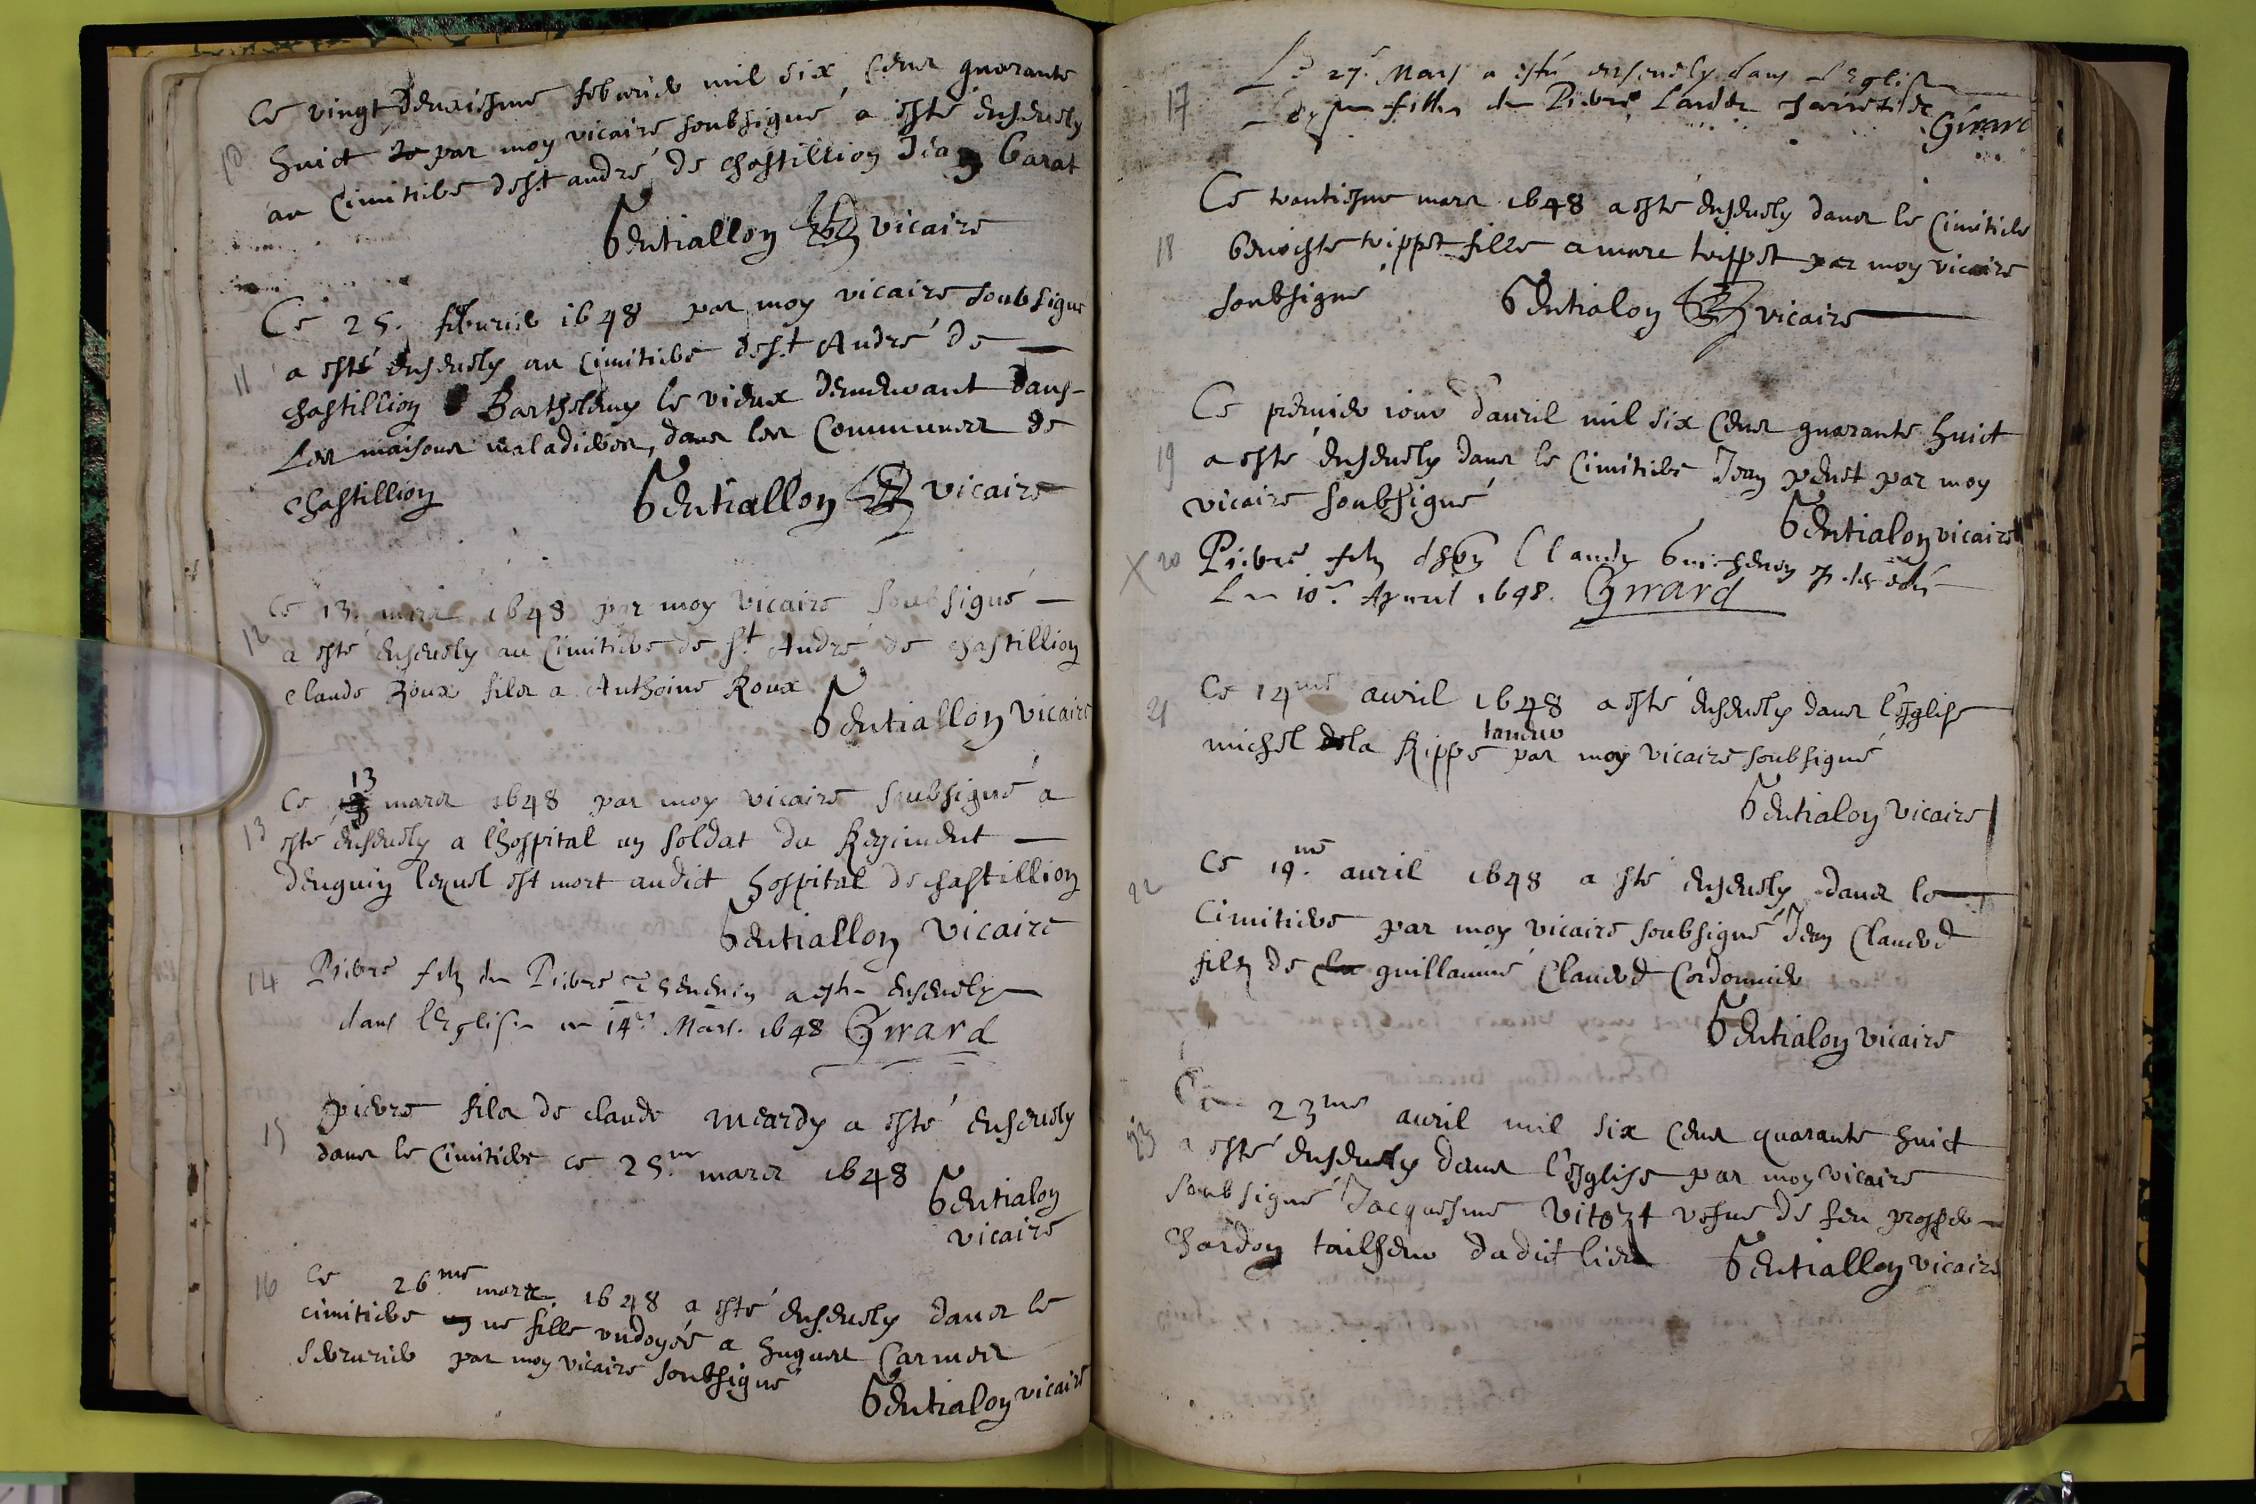 Ce vingt deuxiesme febvrier mil six cens quarante
10
huict par moy vicaire soubsigné a esté ensevely
au cimitiere de St andré de chastillion Jean Garat
Gentiallon vicaire
Ce 25. febvrier 1648 par moy vicaire soubsigné
11
a esté ensevely au cimitiere de St André de
chastillion Barthelemy le vieux demeurant dans
les maisons maladieres, dans les Communes de
chastillion
Gentiallon vicaire
Ce 13 mars 1648 par moy vicaire soubsigné
12
a esté ensevely au cimitiere de St André de chastillion
claude Roux fils a Anthoine Roux
Gentiallon vicaire
Ce 13 mars 1648 par moy vicaire soubsigné a
13
esté ensevely a l'hospital un soldat du Regiment
denguin lequel est mort audict hospital de chastillion
Gentiallon vicaire
14
Pierre filz de Pierre a esté ensevely
dans l'Eglise ce 14e Mars. 1648 Girard
pierre fils de claude meardy a esté ensevely
15
dans le cimitiere ce 25me mars 1648
Gentialon
vicaire
16
Ce 26me mars 1648 a esté ensevely dans le
cimitiere une fille undoyée a hugues Carmer
serrurier par moy vicaire soubsigné
Gentialon vicaire
Le 27e Mars a esté ensevely dans l'Eglise
17
fille de Pierre Larder
Girard
Ce trantiesme mars 1648 a esté ensevely dans le cimitiere
18
benoiste trippet fille a marc trippet par moy vicaire
soubsigné
Gentialon vicaire
Ce premier jour d'avril mil six cens quarante huict
19
a esté ensevely dans le cimitiere Jean penet par moy
vicaire soubsigné
Gentialon vicaire
X 20
Pierre filz Claude Guichenon
Le 10e Apvril 1648. Girard
Ce 14me avril 1648 a esté ensevely dans l'esglise
21
michel dela Rippe tandeur par moy vicaire soubsigné
Gentialon vicaire
Ce 19me avril 1648 a esté ensevely dans le
22
Cimitiere par moy vicaire soubsigné Jean Clauerd
filz de guillaume Clauerd Cordonnier
Gentialon vicaire
Ce 23me avril mil six cens quarante huict
23
a esté ensevely dans l'esglise par moy vicaire
soubsigné Jacquesme vefue de feu prosper
chardon tailheur dudict lieu
Gentiallon vicaire